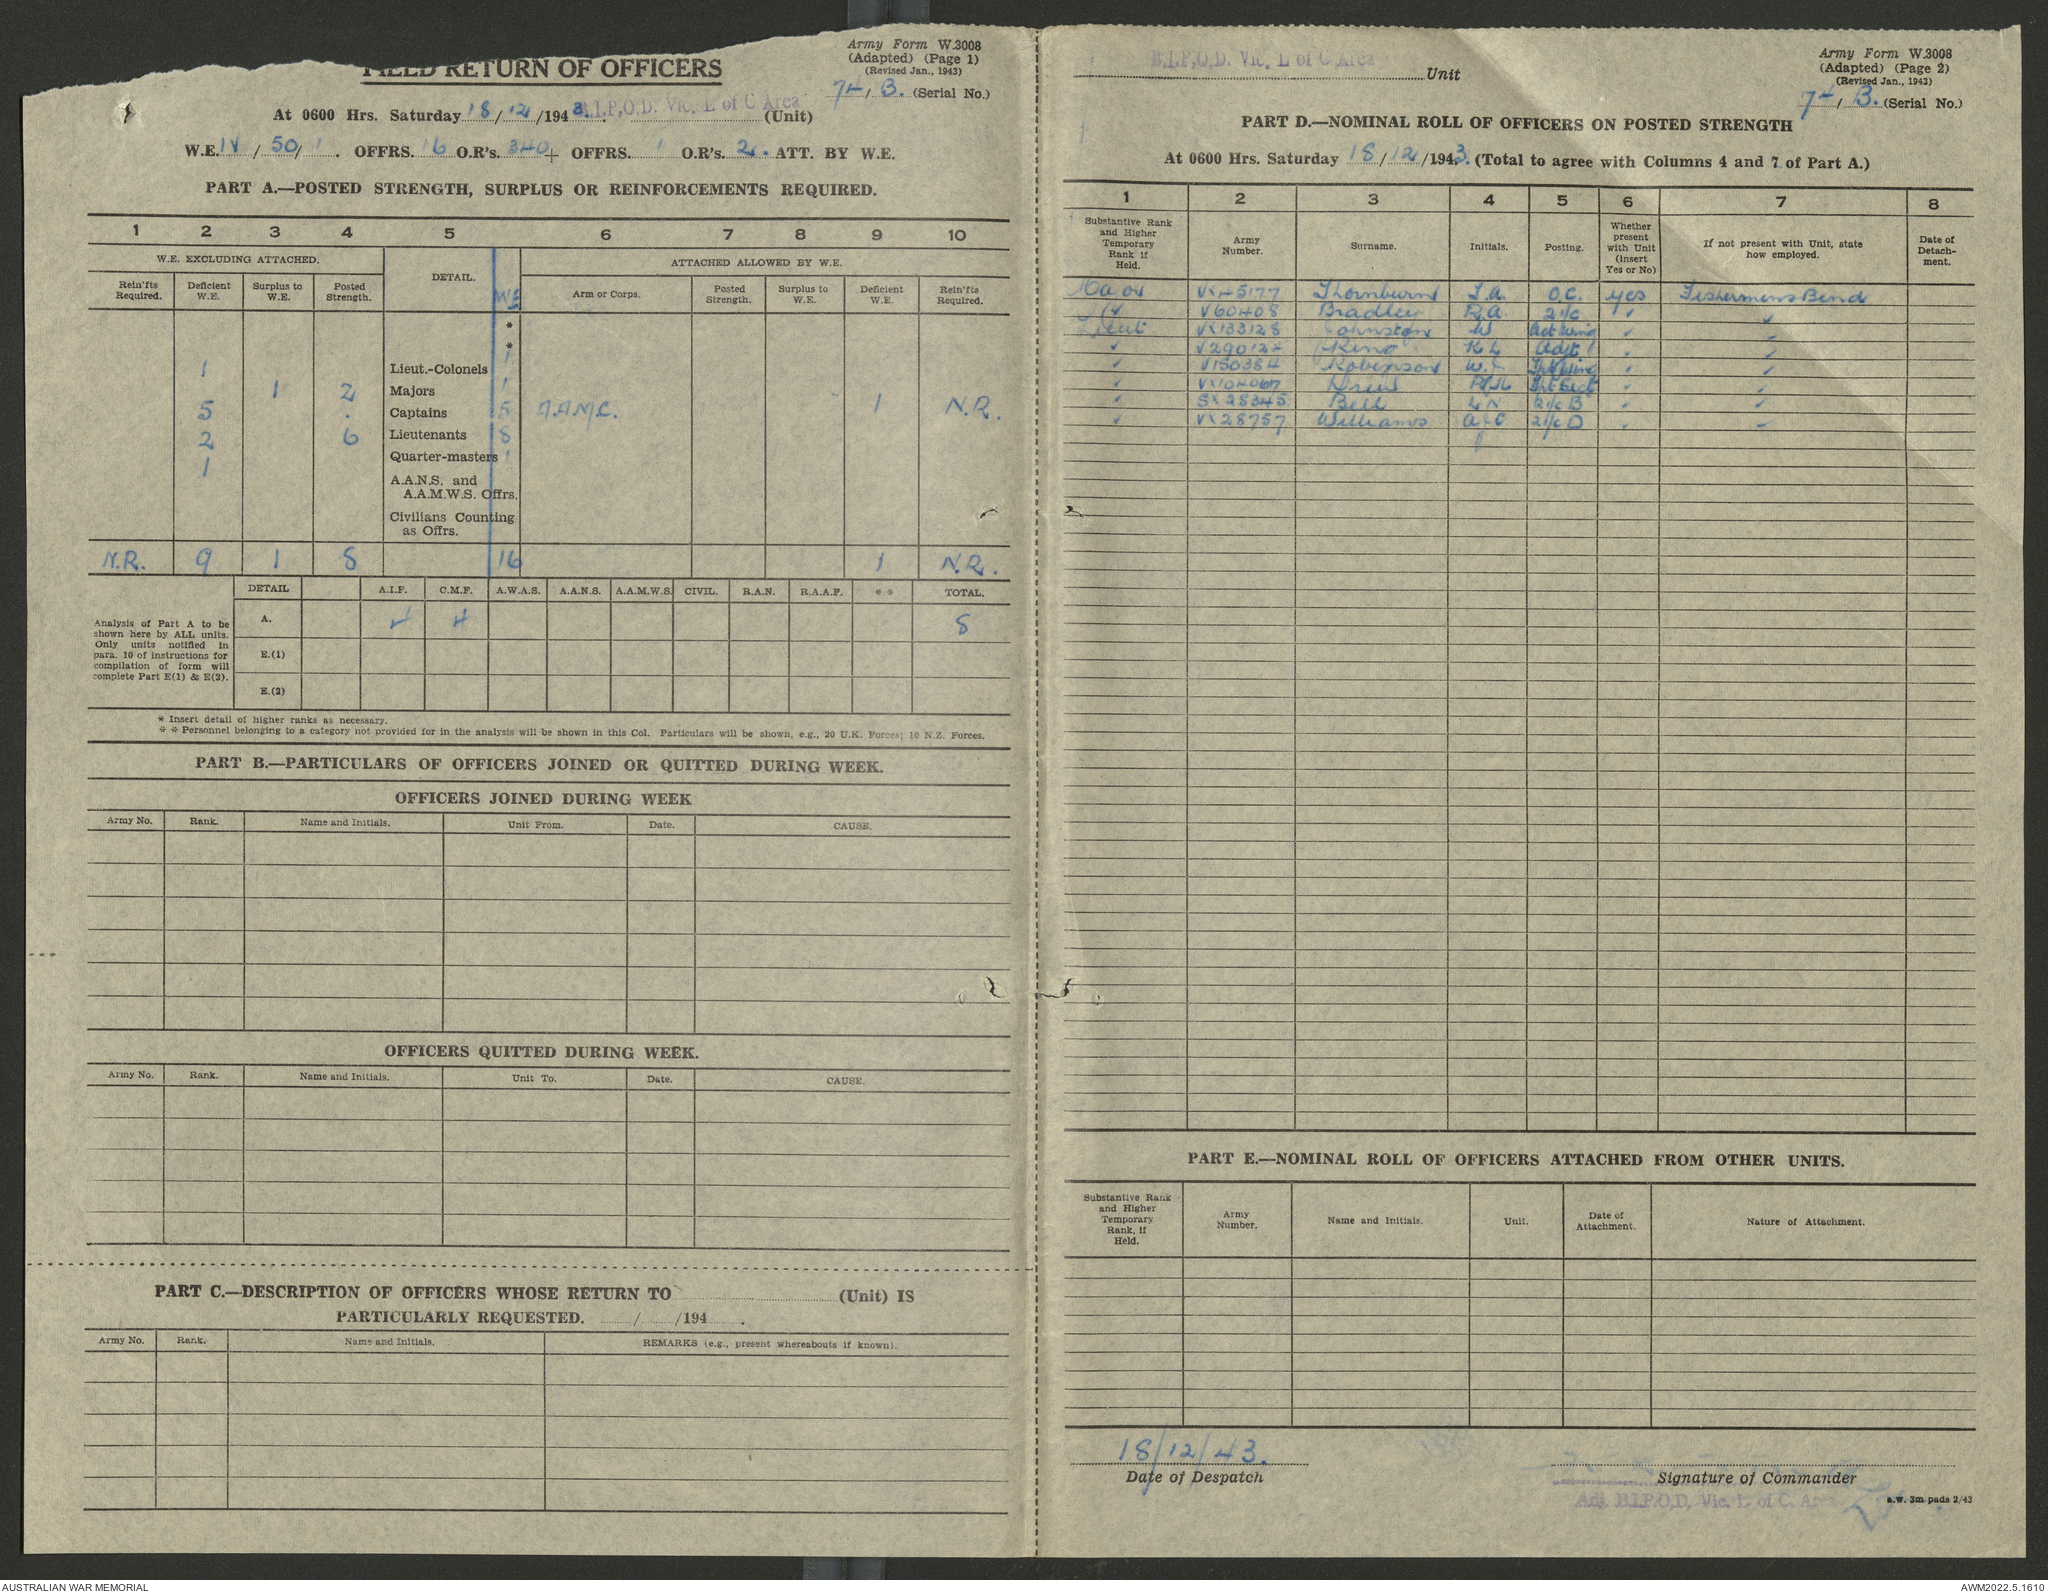 FIELD RETURN OF OFFICERS
Army Form W.3008
(Adapted) (Page 1)
(Revised Jan., 1943)
74/B. (Serial No.)
At 0600 Hrs. Saturday 18/12/1943. B.I.P.O.D. Vic. L of C Area (Unit)
W.E. IV/50/1. OFFRS. 16 O.R's. 340 + OFFRS. 1 O.R's. 2. ATT. BY W.E.
PART A.—POSTED STRENGTH, SURPLUS OR REINFORCEMENTS REQUIRED.
1 2 3 4 5 6 7 8 9 10
W.E. EXCLUDING ATTACHED. DETAIL. W.E. ATTACHED ALLOWED BY W.E.
Rein'fts Required. Deficient W.E. Surplus to W.E. Posted Strength. Arm or Corps. Posted Strength. Surplus to W.E. Deficient W.E. Rein'fts Required.
*
*
1 Lieut.-Colonels 1
1 2 Majors 1
5 . Captains 5 A.A.M.C. 1 N.R.
2 6 Lieutenants 8
1 Quarter-masters 1
A.A.N.S. and
A.A.M.W.S. Offrs.
Civilians Counting
as Offrs.
N.R. 9 1 8 16 1 N.R.
DETAIL A.I.F. C.M.F. A.W.A.S. A.A.N.S. A.A.M.W.S. CIVIL. R.A.N. R.A.A.F. * * TOTAL.
Analysis of Part A to be
shown here by ALL units.
Only units notified in
para. 10 of instructions for
compilation of form will
complete Part E(1) & E(2).
A. 4 4 8
E.(1)
E.(2)
* Insert detail of higher ranks as necessary.
* * Personnel belonging to a category not provided for in the analysis will be shown in this Col. Particulars will be shown, e.g., 20 U.K. Forces; 10 N.Z. Forces.
PART B.—PARTICULARS OF OFFICERS JOINED OR QUITTED DURING WEEK.
OFFICERS JOINED DURING WEEK
Army No. Rank. Name and Initials. Unit From. Date. CAUSE.
OFFICERS QUITTED DURING WEEK.
Army No. Rank. Name and Initials. Unit To. Date. CAUSE.
PART C.—DESCRIPTION OF OFFICERS WHOSE RETURN TO (Unit) IS
PARTICULARLY REQUESTED. / /194 .
Army No. Rank. Name and Initials. REMARKS (e.g., present whereabouts if known).
B.I.P.O.D. Vic. L of C Area Unit
Army Form W.3008
(Adapted) (Page 2)
(Revised Jan., 1943)
74/B. (Serial No.)
PART D.—NOMINAL ROLL OF OFFICERS ON POSTED STRENGTH
At 0600 Hrs. Saturday 18/12/1943. (Total to agree with Columns 4 and 7 of Part A.)
1 2 3 4 5 6 7 8
Substantive Rank and Higher Temporary Rank if Held. Army Number. Surname. Initials. Posting. Whether present with Unit (insert Yes or No) If not present with Unit, state how employed. Date of Detach-ment.
Major VX45177 Thornburn O.C. yes Fishermens Bend
✓ V60408 Bradley R.A. 2i/c ✓ ✓
Lieut VX133128 Johnston W ✓ ✓
✓ King K L Adjt ✓ ✓
✓ V150384 Robinson W. ✓ ✓
✓ VX104067 ✓ ✓
✓ SX28345 Bell L N 2i/c B ✓ ✓
✓ VX28757 Williams 2i/c D ✓ ✓
PART E.—NOMINAL ROLL OF OFFICERS ATTACHED FROM OTHER UNITS.
Substantive Rank and Higher Temporary Rank, if Held. Army Number. Name and Initials. Unit. Date of Attachment. Nature of Attachment.
18/12/43.
Date of Despatch
Signature of Commander
Adj. B.I.P.O.D, Vic. L of C. Area
a.w. 3m pads 2/43
AUSTRALIAN WAR MEMORIAL
AWM2022.5.1610